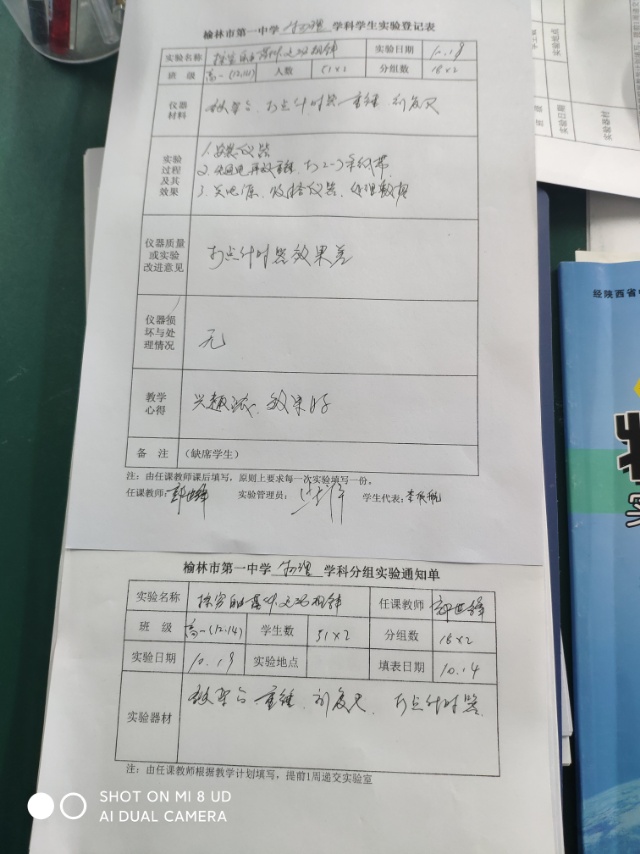 榆林市第一中学 物理 学科学生实验登记表
实验名称 探究自由落体运动规律 实验日期 10.19
班 级 高一(12.14) 人数 51×2 分组数 18×2
仪器
材料
铁架台、打点计时器 重锤、刻度尺
实验
过程
及其
效果
1.安装仪器
2.先通电再放重锤,打2-3条纸带
3.关电源,收拾仪器、处理数据
仪器质量
或实验
改进意见
打点计时器效果差
仪器损
坏与处
理情况
无
教学
心得
兴趣浓、效果好
备 注 (缺席学生)
注:由任课教师课后填写,原则上要求每一次实验填写一份。
任课教师: 实验管理员: 学生代表:
榆林市第一中学 物理 学科分组实验通知单
实验名称 探究自由落体运动规律 任课教师
班 级 高一(12.14) 学生数 51×2 分组数 18×2
实验日期 10.19 实验地点 填表日期 10.14
实验器材 铁架台 重锤、刻度尺、打点计时器
注:由任课教师根据教学计划填写,提前1周递交实验室
经陕西省
实验地点
实验日期
实验器材
SHOT ON MI 8 UD
AI DUAL CAMERA